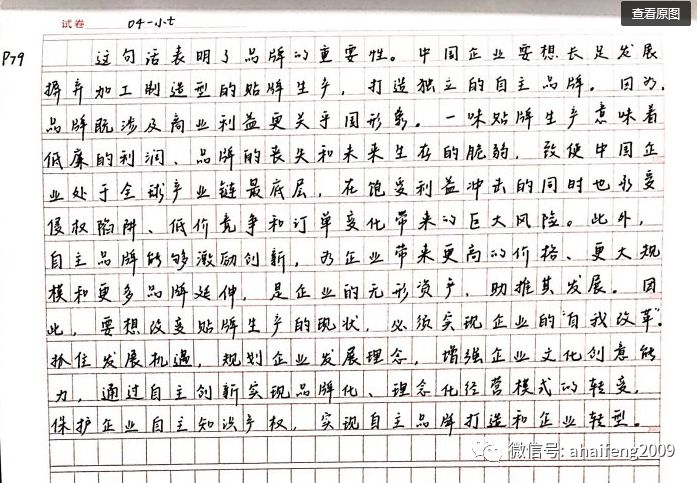 查看原图
试卷 04-小七
P79
这句话表明了品牌的重要性。中国企业要想长足发展
摒弃加工制造型的贴牌生产，打造独立的自主品牌。因为，
品牌既涉及商业利益更关乎国形象。一味贴牌生产意味着
低廉的利润、品牌的丧失和未来生存的脆弱，致使中国企
业处于全球产业链最底层，在饱受利益冲击的同时也承受
侵权陷阱、低价竞争和订单变化带来的巨大风险。此外，
自主品牌能够激励创新，为企业带来更高的价格、更大规
模和更多品牌延伸，是企业的无形资产，助推其发展。因
此，要想改变贴牌生产的现状，必须实现企业的“自我改革”。
抓住发展机遇，规划企业发展理念，增强企业文化创意能
力，通过自主创新实现品牌化、理念化经营模式的转变，
保护企业自主知识产权，实现自主品牌打造和企业转型。
微信号: ahaifeng2009